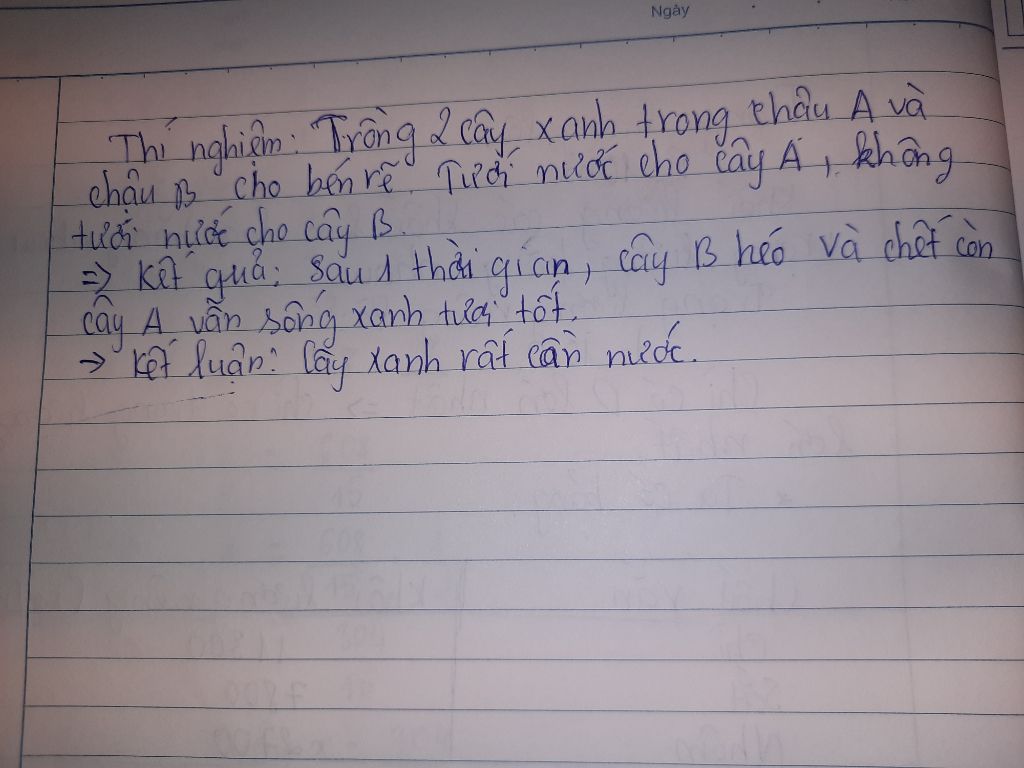 Ngày
Thí nghiệm: Trồng 2 cây xanh trong chậu A và
chậu B cho bén rễ. Tưới nước cho cây A, không
tưới nước cho cây B.
=> Kết quả: Sau 1 thời gian, cây B héo và chết còn
cây A vẫn sống xanh tươi tốt.
→ Kết luận: Cây xanh rất cần nước.